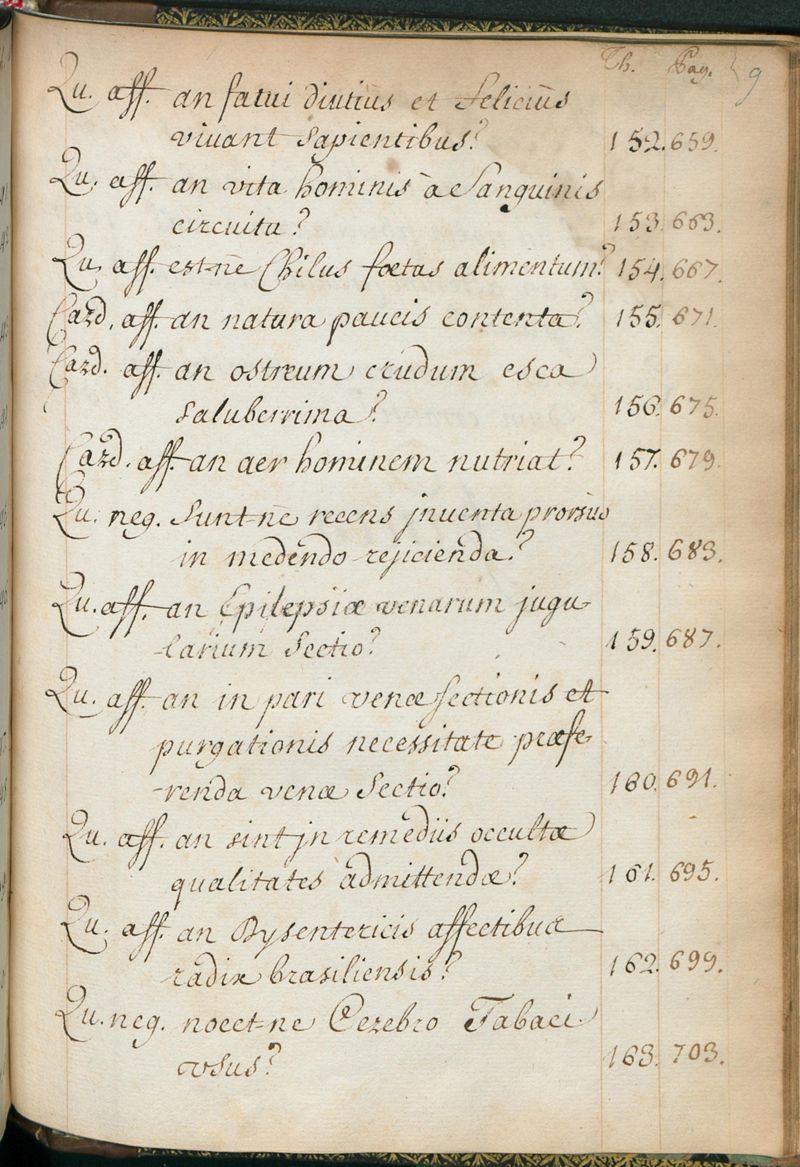 Th. Pag. 9
Qu. aff. an fatui diutiùs et feliciùs
vivant sapientibus? 152. 659.
Qu. aff. an vita hominis à Sanguinis
circuitu? 153. 663.
Qu. aff. est-ne Chilus fœtus alimentum? 154. 667.
Card. aff. an natura paucis contenta? 155. 671.
Card. aff. an ostreum crudum esca
saluberrima? 156. 675.
Card. aff. an aer hominem nutriat? 157. 679.
Qu. neg. sunt-ne recens jnventa prorsus
in medendo rejicienda? 158. 683.
Qu. aff. an Epilepsiæ venarum jugu-
-larium sectio? 159. 687.
Qu. aff. an in pari venæ sectionis et
purgationis necessitate præfe-
-renda venæ sectio? 160. 691.
Qu. aff. an sint jn remediis occultæ
qualitates admittendæ? 161. 695.
Qu. aff. an Dysentericis affectibus
radix brasiliensis? 162. 699.
Qu. neg. nocet-ne Cerebro Tabaci
vsus? 163. 703.